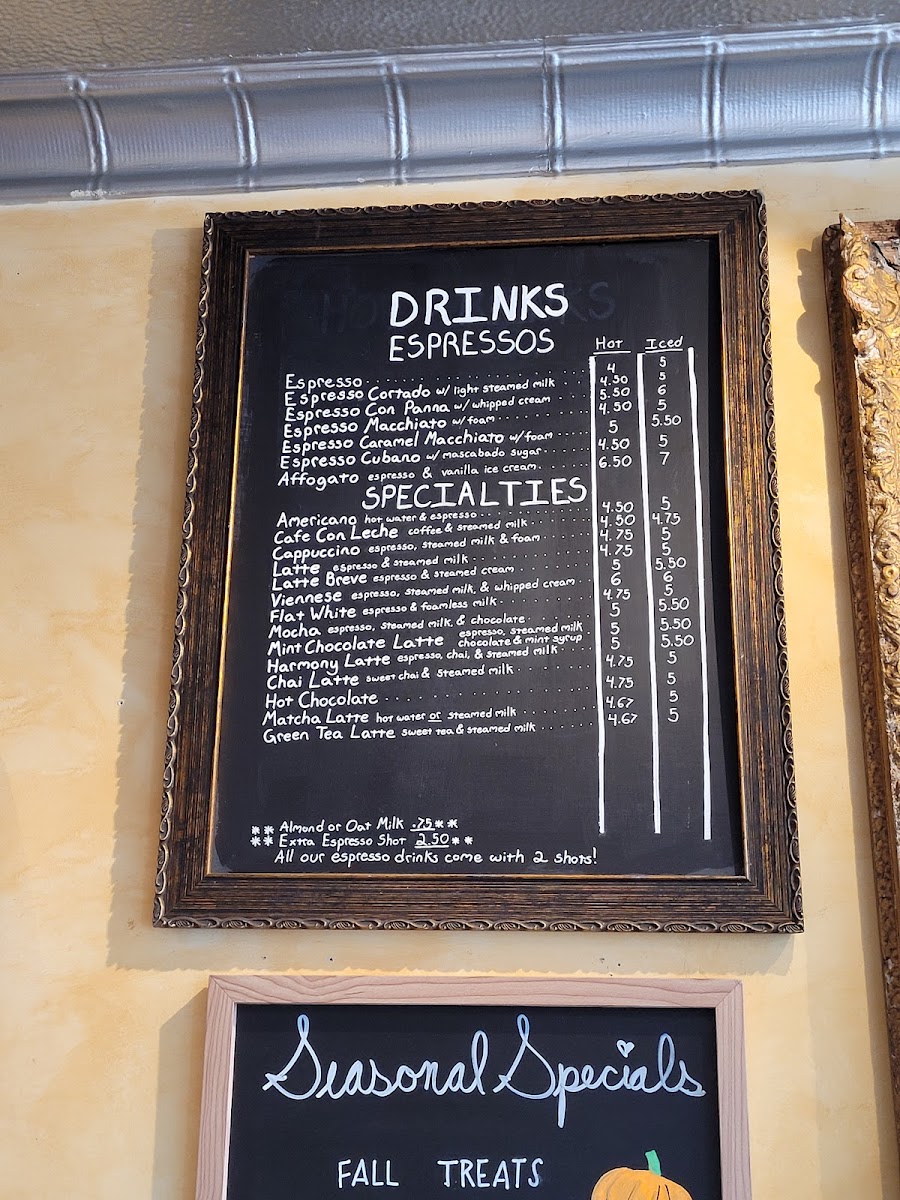 DRINKS
ESPRESSOS
Hot Iced
Espresso 4 5
Espresso Cortado w/ light steamed milk 4.50 5
Espresso Con Panna w/ whipped cream 5.50 6
Espresso Macchiato w/ foam 4.50 5
Espresso Caramel Macchiato w/ foam 5 5.50
Espresso Cubano w/ mascabado sugar 4.50 5
Affogato espresso & vanilla ice cream 6.50 7
SPECIALTIES
Americano hot water & espresso 4.50 5
Cafe Con Leche coffee & steamed milk 4.50 4.75
Cappuccino espresso, steamed milk & foam 4.75 5
Latte espresso & steamed milk 4.75 5
Latte Breve espresso & steamed cream 5 5.50
Viennese espresso, steamed milk, & whipped cream 6 6
Flat White espresso & foamless milk 4.75 5
Mocha espresso, steamed milk, & chocolate 5 5.50
Mint Chocolate Latte espresso, steamed milk chocolate & mint syrup 5 5.50
Harmony Latte espresso, chai, & steamed milk 5 5.50
Chai Latte sweet chai & steamed milk 4.75 5
Hot Chocolate 4.75 5
Matcha Latte hot water or steamed milk 4.67 5
Green Tea Latte sweet tea & steamed milk 4.67 5
** Almond or Oat Milk .75 **
** Extra Espresso Shot 2.50 **
All our espresso drinks come with 2 shots!
Seasonal Specials
FALL TREATS